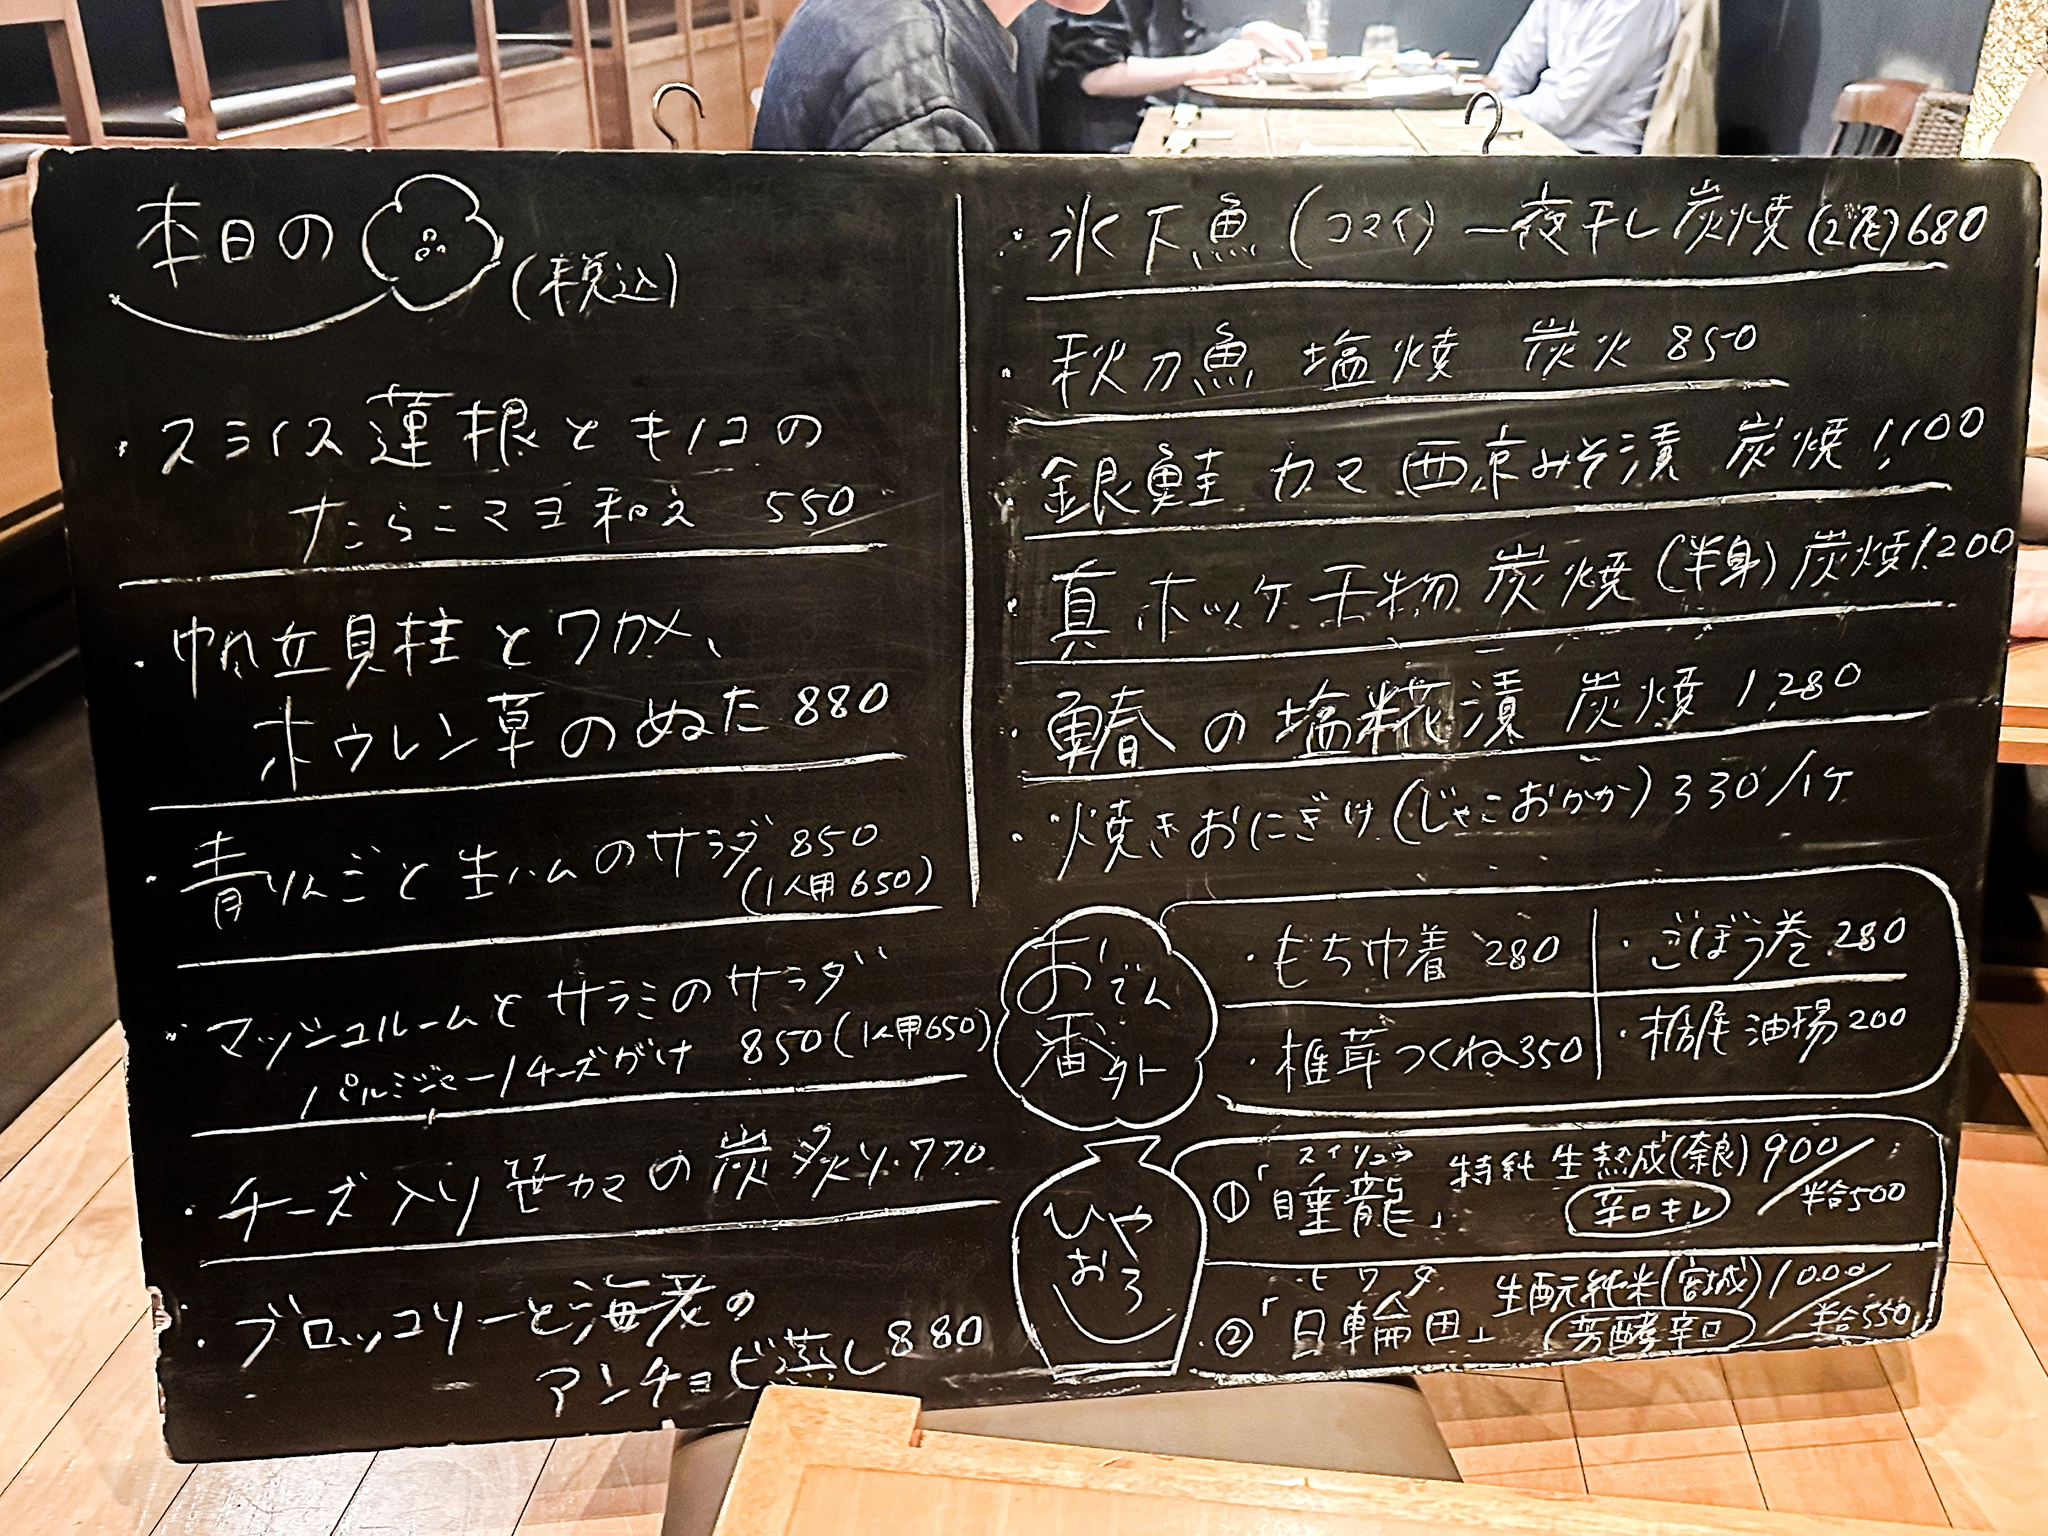 本日の
(税込)
・スライス蓮根とキノコの
たらこマヨ和え 550
・帆立貝柱とワカメ、
ホウレン草のぬた 880
・青りんごと生ハムのサラダ 850
(1人用650)
・マッシュルームとサラミのサラダ
パルミジャーノチーズがけ 850(1人用650)
・チーズ入り笹カマの炭炙り 770
・ブロッコリーと海老の
アンチョビ蒸し 880
・氷下魚(コマイ)一夜干し炭焼(2尾)680
・秋刀魚 塩焼 炭火 850
・銀鮭 カマ 西京みそ漬 炭焼 1,100
・真ホッケ干物 炭焼(半身)炭焼1,200
・鰆の塩糀漬 炭焼 1,280
・焼きおにぎり(じゃこおかか)330/1ケ
おでん
番外
・もち巾着 280
・ごぼう巻 280
・椎茸つくね350
・栃尾油揚200
ひや
おろし
スイリュウ
①「睡龍」 特純生熟成(奈良)900/
辛口キレ 半合500
ヒワタ
②「日輪田」 生酛純米(宮城)1000/
芳醇辛口 半合550